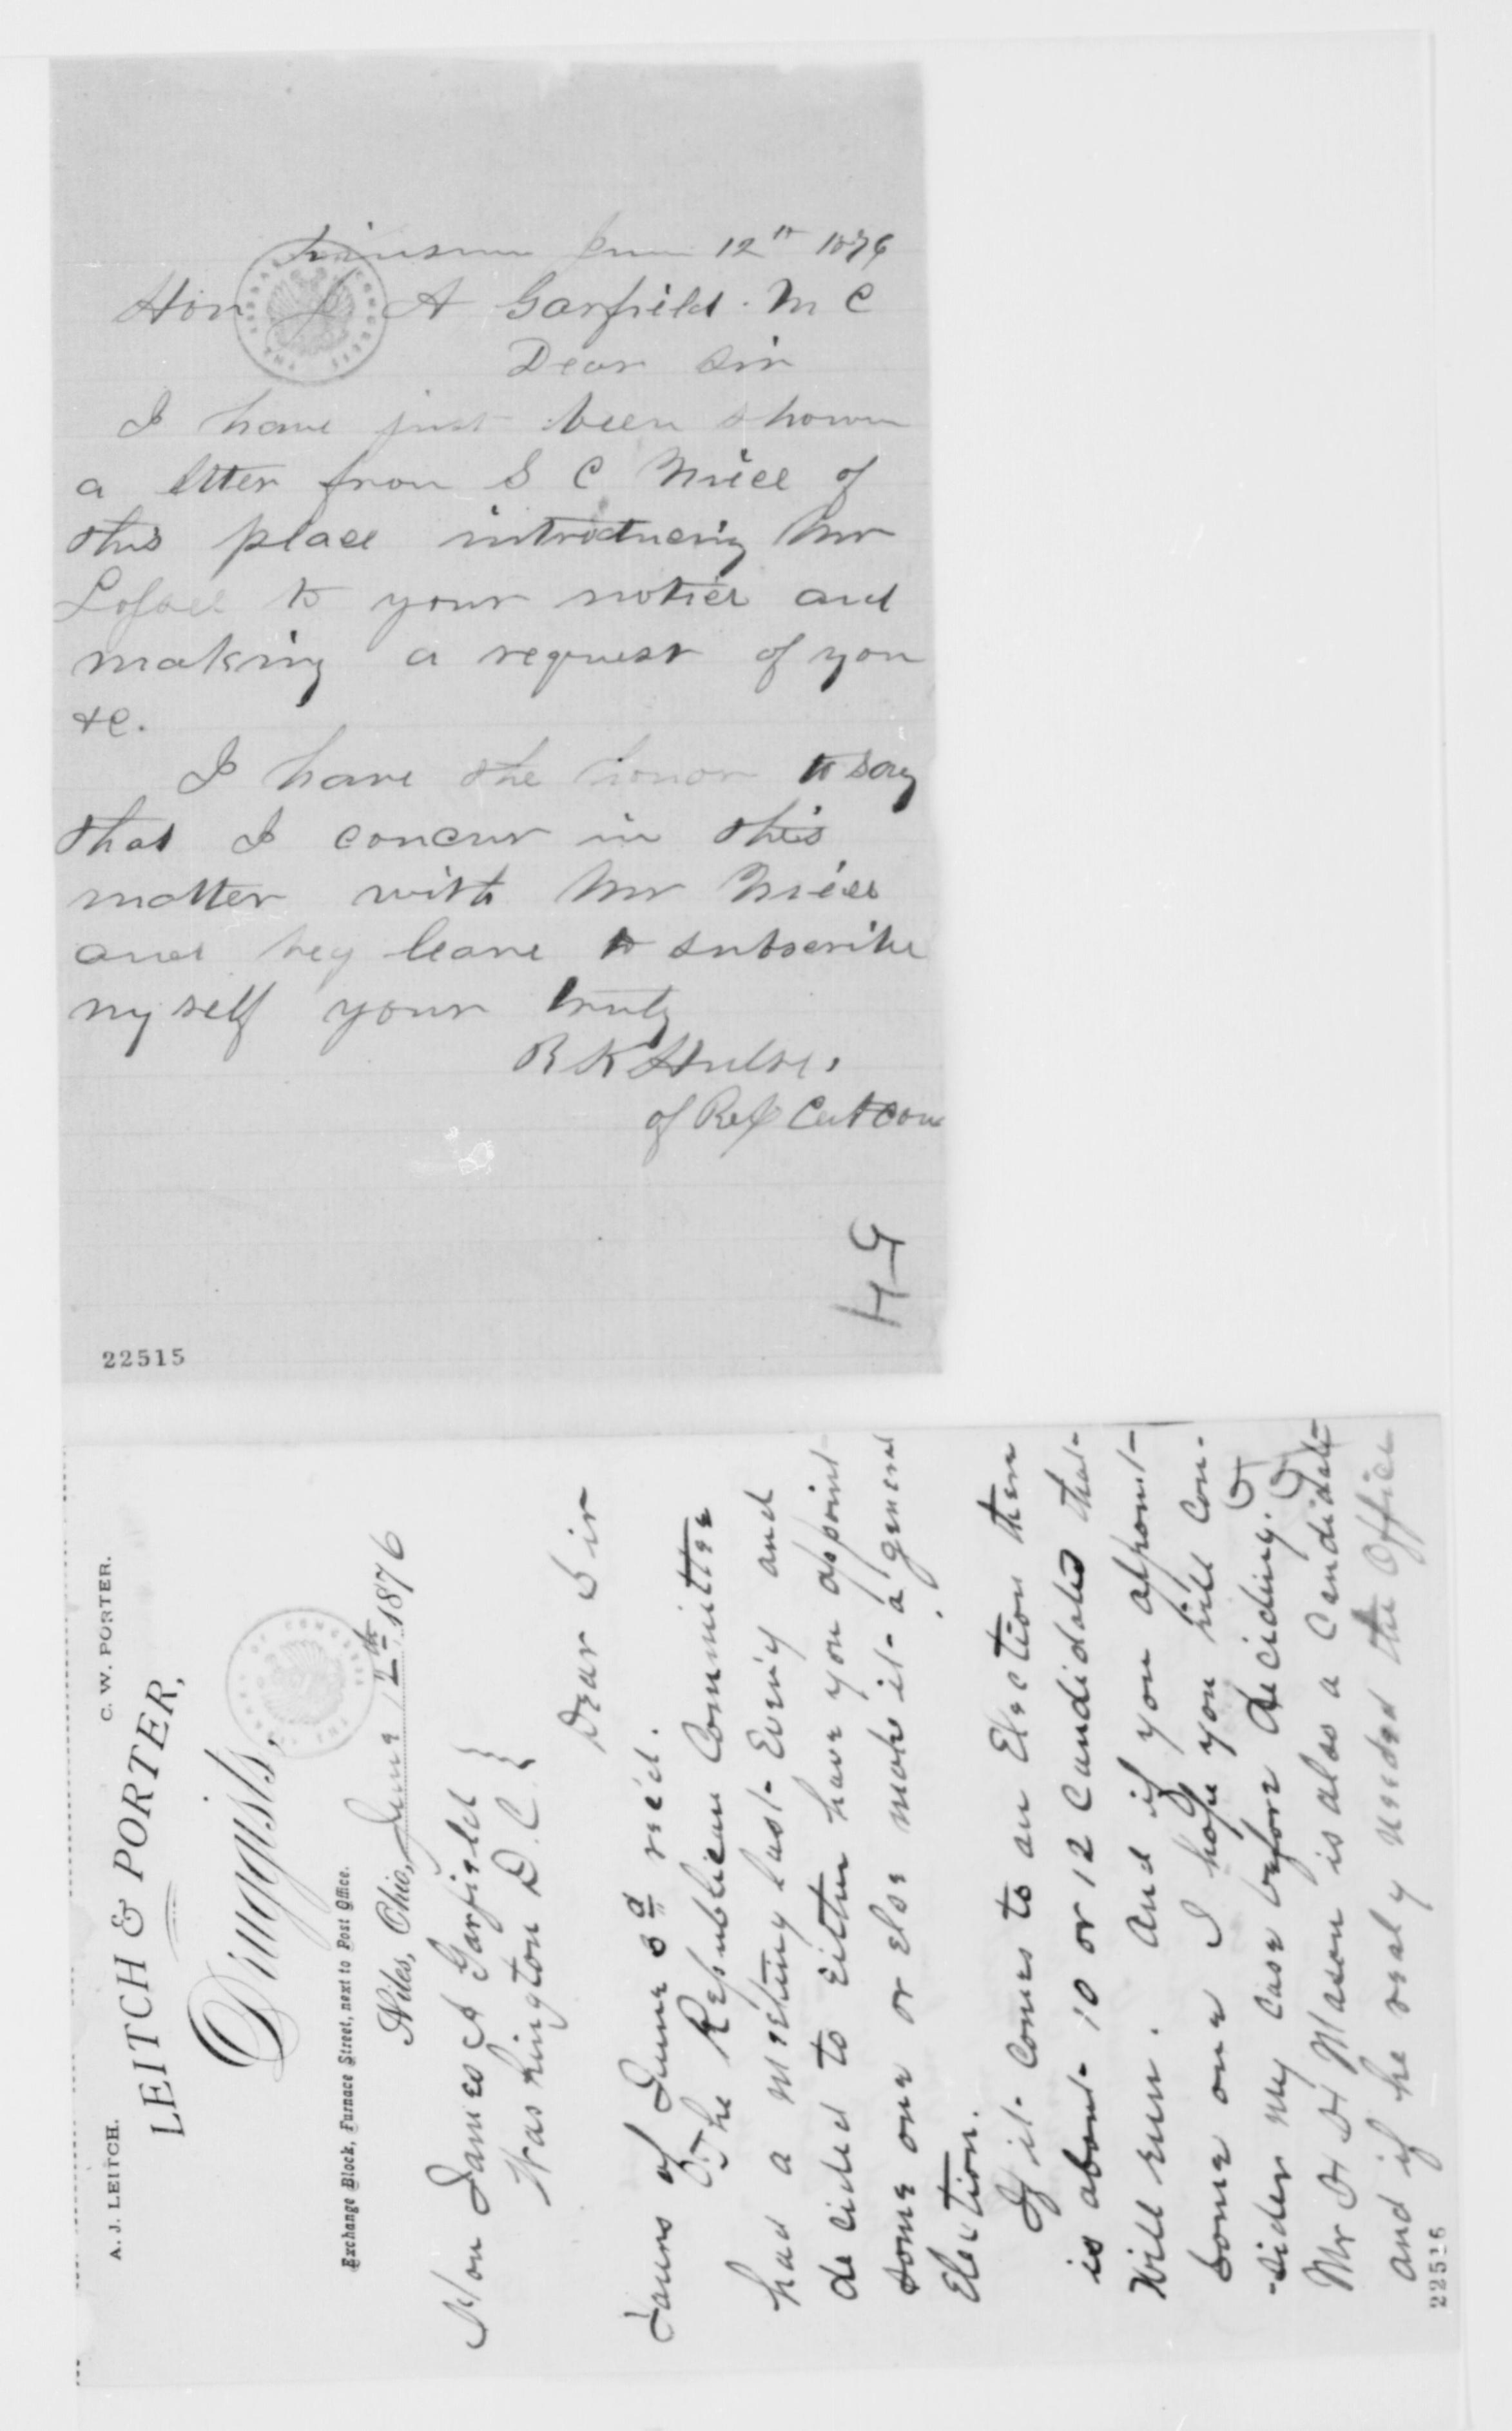 Kinsman June 12th 1876
Hon J A Garfield. M C
Dear Sir
I have just been shown
a letter from S C of
this place introducing Mr
to your notice and
making a request of you
&c.
I have the honor to say
that I concur in this
matter with Mr
and beg leave to subscribe
myself your truly
R K Hulse.
of Rep Cent Com
H-G
22515
A. J. LEITCH. C. W. PORTER.
LEITCH & PORTER,
Druggists,
Exchange Block, Furnace Street, next to Post Office.
Niles, Ohio, June 12th 1876
Hon James A Garfield }
Washington D. C. }
Dear Sir
Yours of June 3d rec'd.
The Republican Committee
had a meeting last Eveng and
decided to Either have you appoint
some one or else make it a general
Election.
If it comes to an Election there
is about 10 or 12 Candidates that
Will run. And if you appoint
Some one I hope you will Con-
-sider my case before deciding.
Mr H H Mason is also a Candidate
and if he realy needed the Office
22516